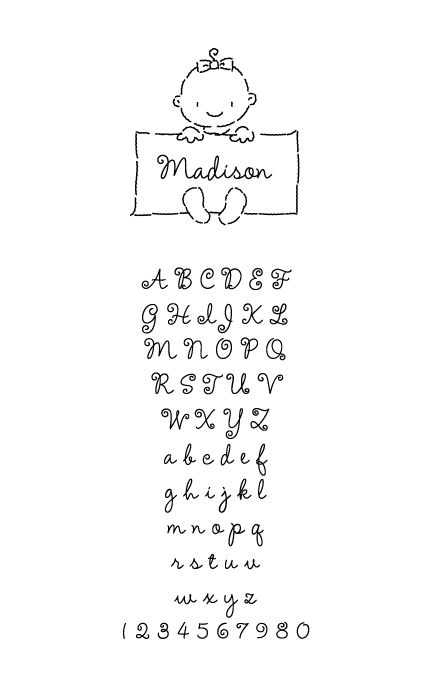 Madison
A B C D E F
G H I J K L
M N O P Q
R S T U V
W X Y Z
a b c d e f
g h i j k l
m n o p q
r s t u v
w x y z
1 2 3 4 5 6 7 9 8 0